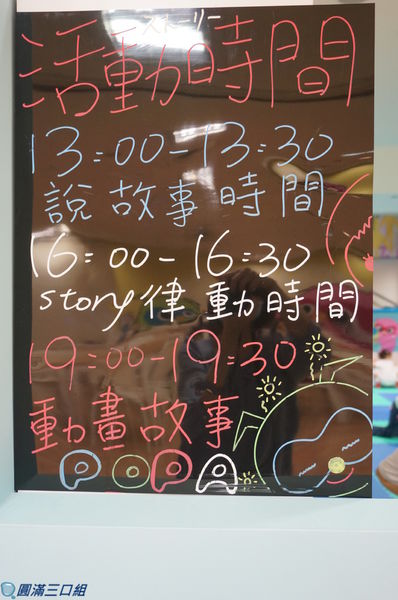 ストーリー
活動時間
13:00-13:30
說故事時間
16:00-16:30
story律動時間
19:00-19:30
動畫故事
POPA
圓滿三口組